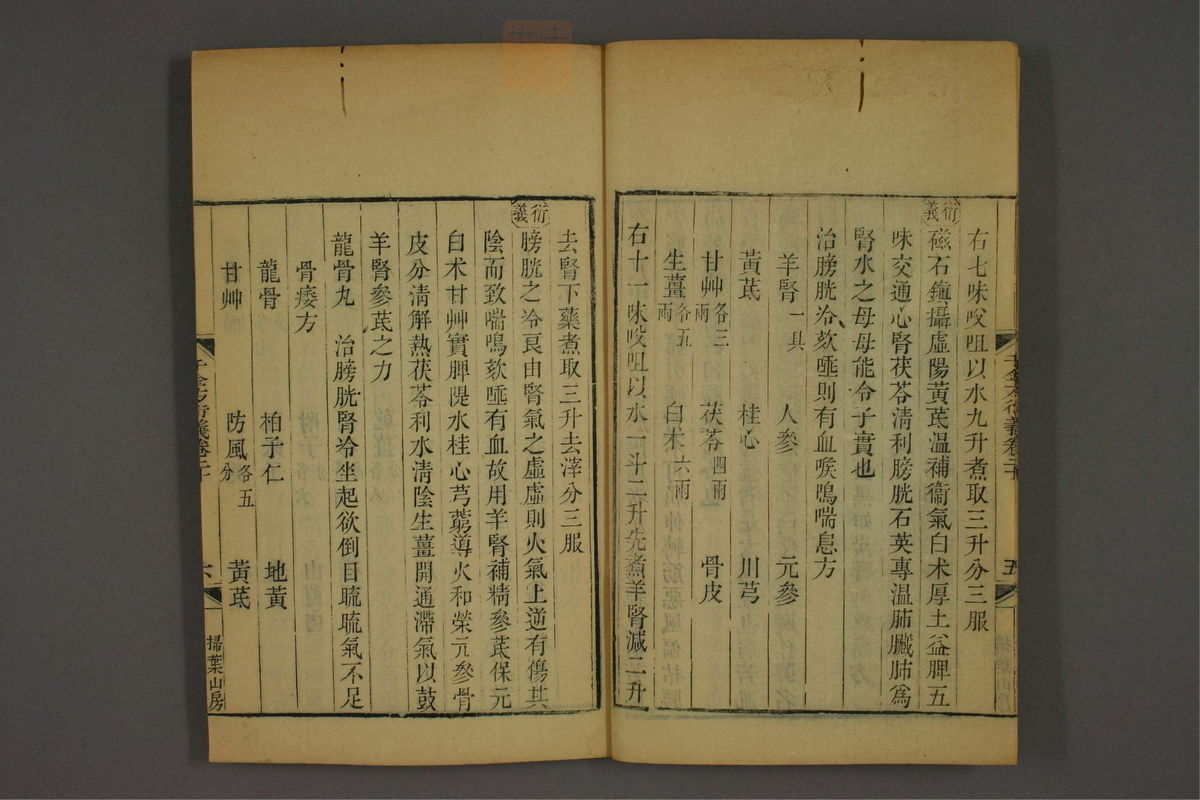 右七味㕮咀以水九升煮取三升分三服
衍義
磁石鎭攝虛陽黃芪溫補衞氣白术厚土益脾五
味交通心腎茯苓淸利膀胱石英專溫肺臟肺爲
腎水之母母能令子實也
治膀胱冷欬唾則有血喉鳴喘息方
羊腎一具 人參 元參
黃芪 桂心 川芎
甘艸各三兩 茯苓四兩 骨皮
生薑各五兩 白术六兩
右十一味㕮咀以水一斗二升先煮羊腎減二升
千金方衍義卷二十 五
去腎下藥煮取三升去滓分三服
衍義
膀胱之冷良由腎氣之虛虛則火氣上逆有傷其
陰而致喘鳴欬唾有血故用羊腎補精參芪保元
白术甘艸實脾隄水桂心芎藭導火和榮元參骨
皮分淸解熱茯苓利水淸陰生薑開通滯氣以鼓
羊腎參芪之力
龍骨丸 治膀胱腎冷坐起欲倒目䀮䀮氣不足
骨痿方
龍骨 柏子仁 地黃
甘艸 防風各五分 黃芪
千金方衍義卷二十 六 掃葉山房